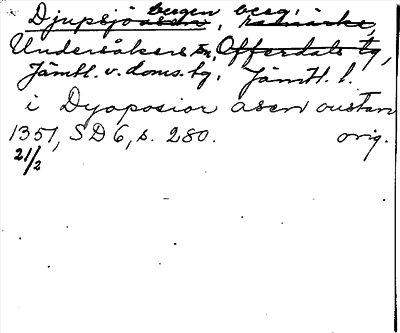 bergen berg,
Djupsjöåsen, råmärke,
Undersåkers sn, Offerdals tg,
Jämtl. v. doms. tg. Jämtl. l.
i Dyoposior asen oustan
1351, SD 6, s. 280. orig.
21/2